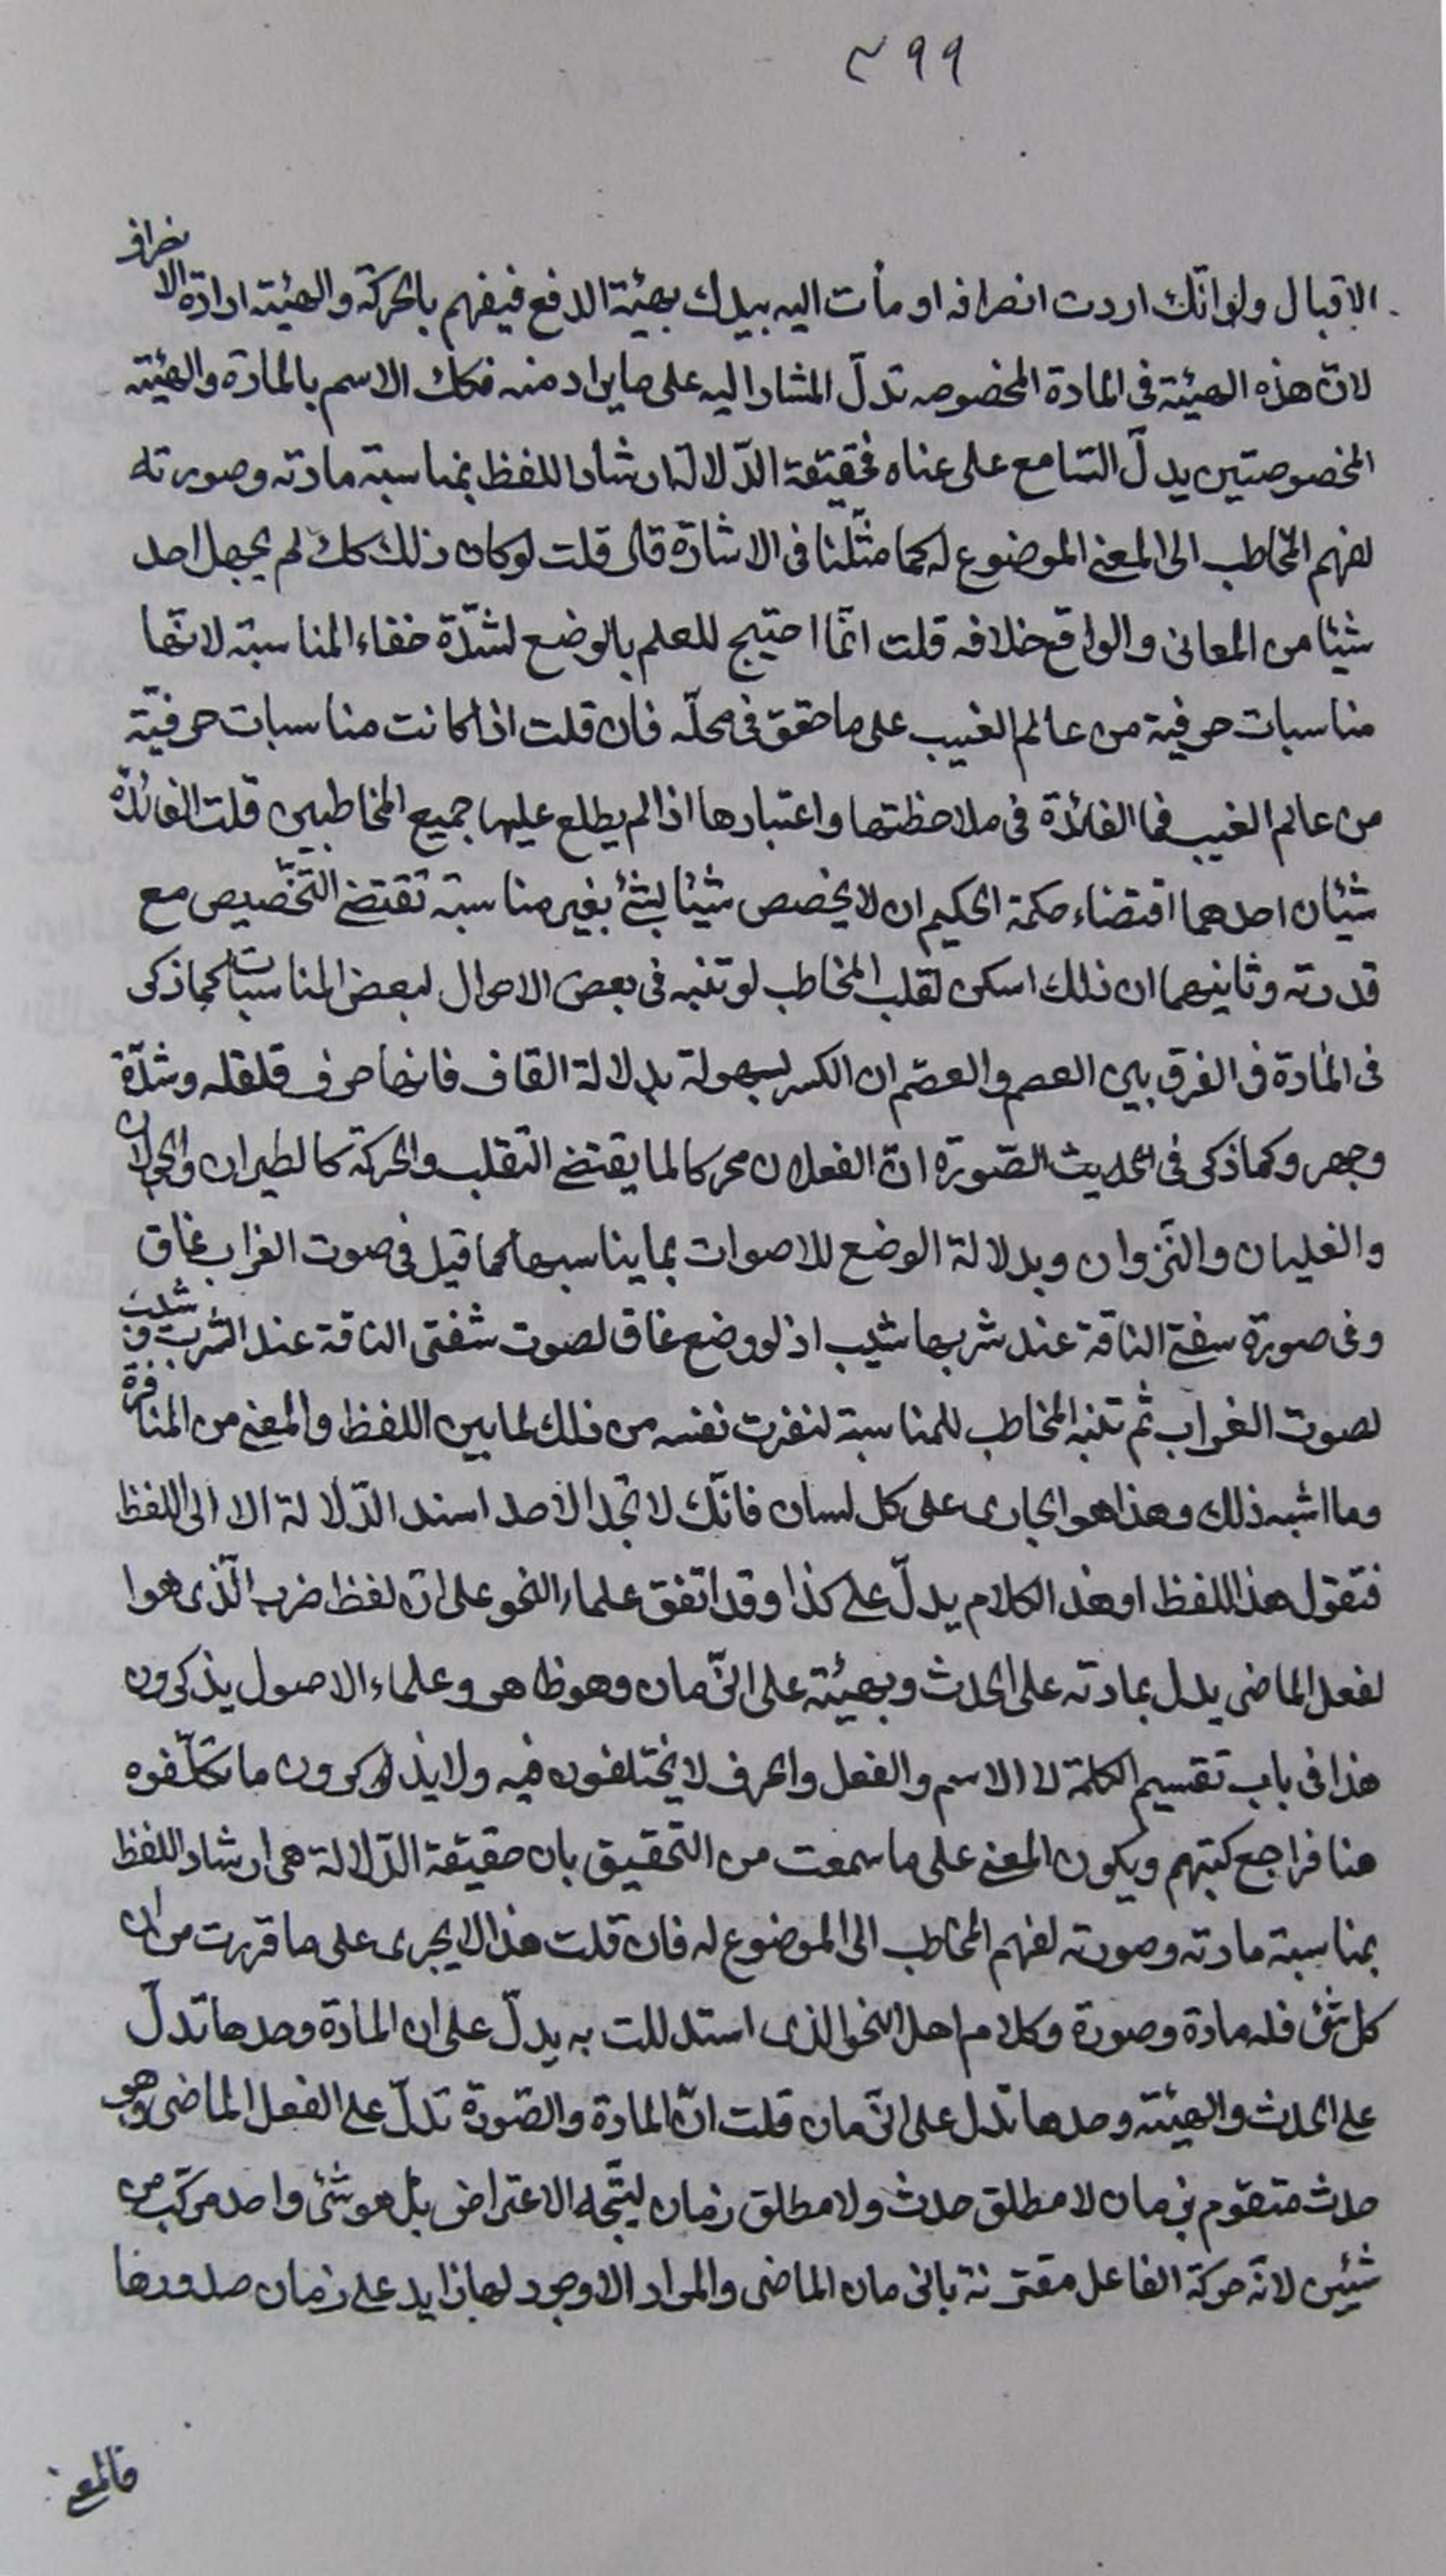 ٣٩٩
الاقبال ولو انّك اردت انصرافه او مأت اليه بيدك بهيئة الدفع فيفهم بالحركة والهيئة ارادة الانصراف
لان هذه الهيئة فى المادة المخصوصه تدلّ المشار اليه على ما يراد منه فكك الاسم بالمادة والهيئة
المخصوصتين يدلّ السّامع على معناه فحقيقة الدّلالة ارشاد اللفظ بمناسبة مادته وصورته
لفهم المخاطب الى المعنى الموضوع له كما مثّلنا فى الاشارة فان قلت لو كان ذلك كك لم يجهل احد
شيئا من المعانى والواقع خلافه قلت انّما احتيج للعلم بالوضع لشدّة خفاء المناسبة لانّها
مناسبات حرفية من عالم الغيب على ما حقق فى محلّه فان قلت اذا كانت مناسبات حرفيّة
من عالم الغيب فما الفائدة فى ملاحظتها واعتبارها اذا لم يطلع عليها جميع المخاطبين قلت الفائدة
شيئان احدهما اقتضاء حكمة الحكيم ان لا يخصص شيئا بشئ بغير مناسبة تقتضى التّخصيص مع
قدرته وثانيهما ان ذلك اسكن لقلب المخاطب لو تنبه فى بعض الاحوال لبعض المناسبات كما ذكر
فى المادة فى الفرق بين الفصم والقصم ان الكسر بسهولة بدلالة القاف فانها حرف قلقله وشدّة
وجهر وكما ذكر فى الحديث الصّورة انّ الفعلان محركا لما يقتضى التقلب والحركة كالطيران والجولان
والغليان والنّزوان وبدلالة الوضع للاصوات بما يناسبها كما قيل فى صوت الغراب غاق
وفى صورة سفة الناقة عند شربها شيب اذ لو وضع غاق لصوت شفتى الناقة عند الشرب وشيب
لصوت الغراب ثم تنبه المخاطب للمناسبة لنفرت نفسه من ذلك لما بين اللفظ والمعنى من المنافرة
وما اشبه ذلك وهذا هو الجارى على كل لسان فانّك لا تجد الاحد اسند الدّلالة الا الى اللفظ
فتقول هذا اللفظ او هذ الكلام يدلّ على كذا وقد اتفق علماء النحو على انّ لفظ ضرب الّذى هوا
لفعل الماضى يدل بمادته على الحدث وبهيئته على الزّمان وهو ظاهر وعلماء الاصول يذكرون
هذا فى باب تقسيم الكلمة لا الاسم والفعل والحرف لا يختلفون فيه ولا يذكرون ما تكلّفوه
هنا فراجع كتبهم ويكون المعنى على ما سمعت من التحقيق بان حقيقة الدّلالة هى ارشاد اللفظ
بمناسبة مادته وصورته لفهم المخاطب الى الموضوع له فان قلت هذا لا يجرى على ما قررت من ان
كل شئ فله مادة وصورة وكلام اهل النحو الذى استدللت به يدلّ على ان المادة وحدها تدلّ
على الحدث والهيئة وحدها تدل على الزّمان قلت انّ المادة والصّورة تدلّ على الفعل الماضى وهو
حدث متقوم بزمان لا مطلق حدث ولا مطلق زمان ليتّجه الاعتراض بل هو شئ واحد مركّب من
شيئين لانّه حركة الفاعل مقترنة بالزمان الماضى والمراد الا وجود لها زايد على زمان صدورها
فالمعنى